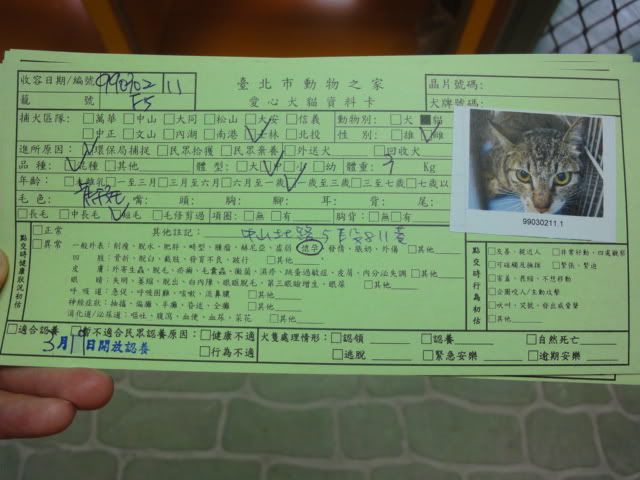 收容日期/編號 990302 11 臺北市動物之家 晶片號碼:
籠 號 F5 愛心犬貓資料卡 犬牌號碼:
捕犬區隊: □萬華 □中山 □大同 □松山 □大安 □信義 動物別: □犬 ■貓
□中正 □文山 □內湖 □南港 □士林 □北投 性 別: □雄 □雌
進所原因: □環保局捕捉 □民眾拾獲 □民眾棄養 □外送犬 □回收犬
品 種: □混種 □其他 體 型: □大 □中 □小 □幼 體重: Kg
年齡: □離乳 □一至三月 □三月至六月 □六月至一歲 □一歲至三歲 □三歲至七歲 □七歲以上
毛 色: 嘴: 頭: 胸: 腳: 耳: 背: 尾:
□長毛 □中長毛 □短毛 □毛修剪過 項圈: □無 □有 胸背: □無 □有
99030211.1
點交時健康狀況初估 □正常 其他註記: 中山北路5段811巷
□異常 一般外表: 削瘦、脫水、肥胖、畸型、腫瘤、赫尼亞、虛弱、懷孕、發情、脹奶、外傷 □其他
四 肢: 骨折、脫臼、截肢、發育不良、跛行 □其他
皮 膚: 外寄生蟲、脫毛、疥癬、毛囊蟲、黴菌、濕疹、跳蚤過敏症、皮屑、內分泌失調 □其他
眼 睛: 失明、萎縮、脫出、白內障、眼瞼脫毛、第三眼瞼增生、眼屎 □其他
呼 吸 道: 急促、呼吸困難、咳嗽、流鼻膿 □其他
神經症狀: 抽搐、偏癱、半癱、昏迷、全癱 □其他
消化道/泌尿道: 嘔吐、腹瀉、血便、血尿、菜花 □其他
點交時行為初估 □友善、親近人 □非常好動、四處觀察
□可碰觸及撫摸 □緊張、緊迫
□害羞、畏縮、不想移動
□企圖咬人/主動攻擊
□吠叫、哭號、發出威脅聲
□其他
□適合認養 □暫不適合民眾認養原因: □健康不適 犬隻處理情形: □認領 □認養 □自然死亡
3月19日開放認養 □行為不適 □逃脫 □緊急安樂 □逾期安樂